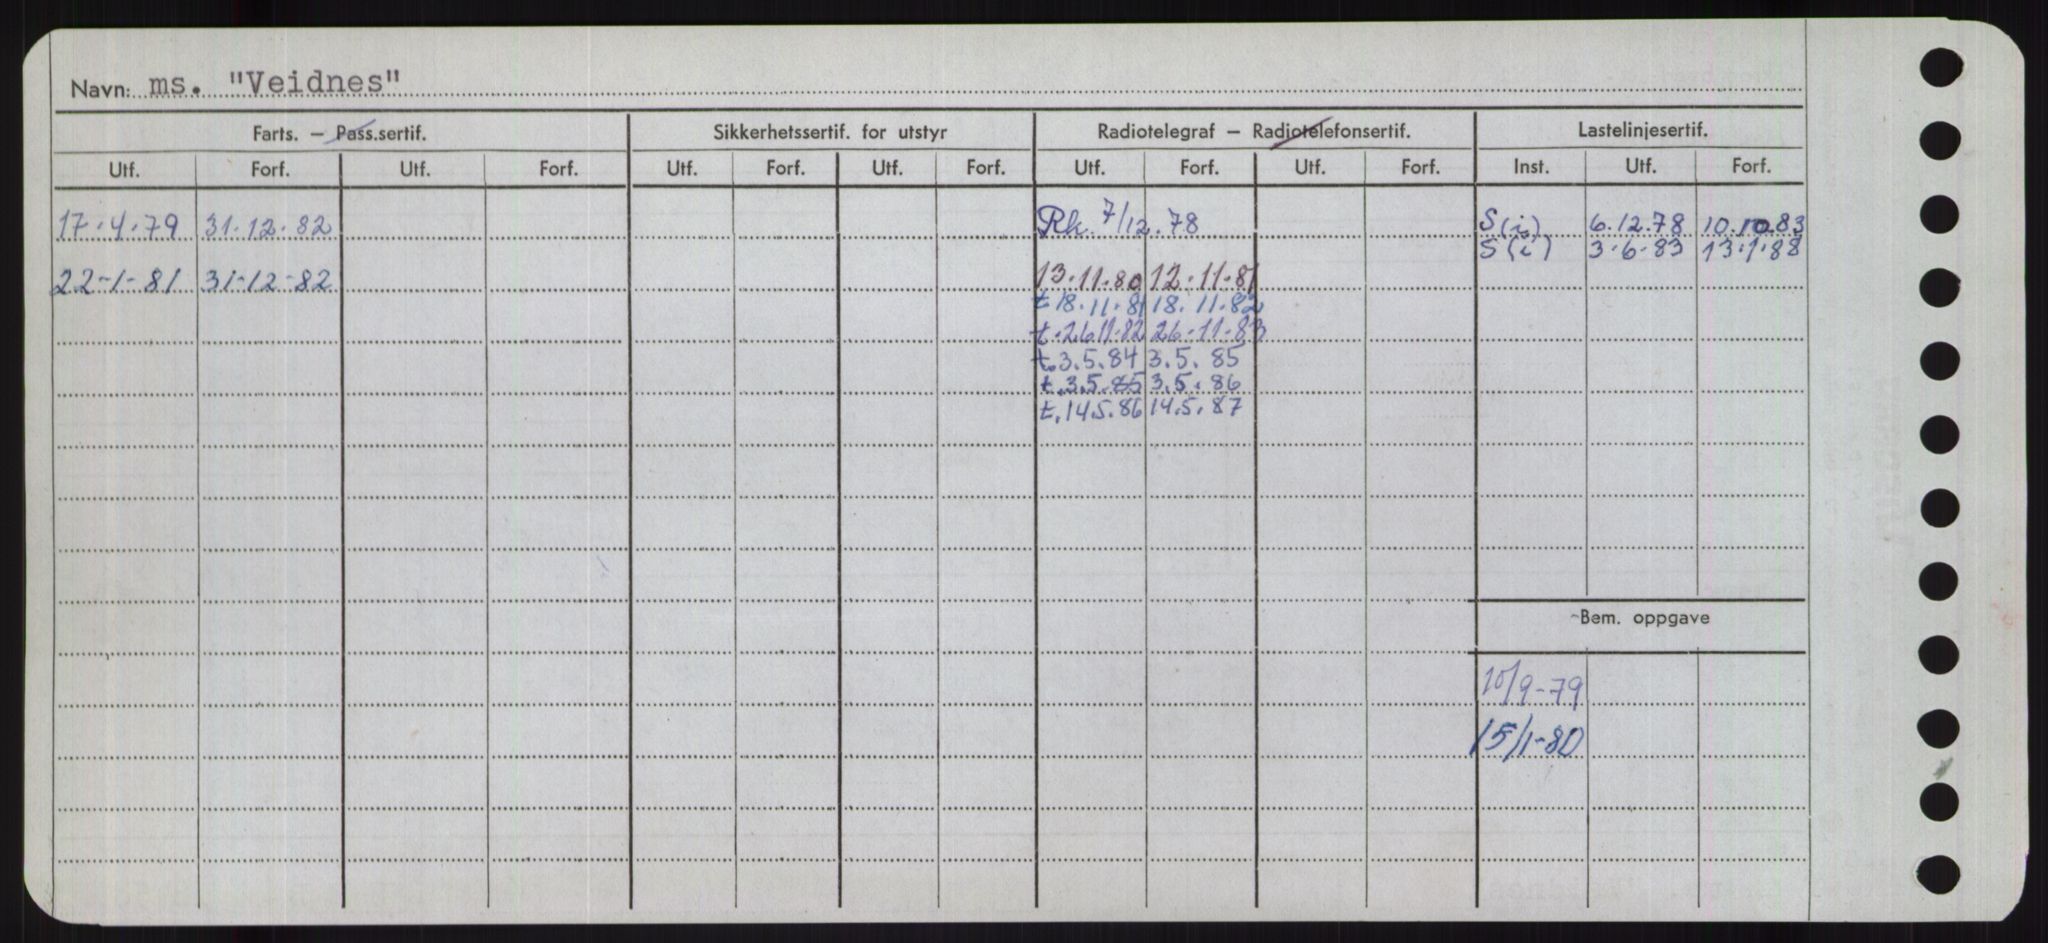 Navn: ms. "Veidnes"
Farts. – Pass.sertif. Sikkerhetssertif. for utstyr Radiotelegraf – Radiotelefonsertif. Lastelinjesertif.
Utf. Forf. Utf. Forf. Utf. Forf. Utf. Forf. Utf. Forf. Utf. Forf. Inst. Utf. Forf.
17.4.79 31.12.82 Rk. 7/12.78 S(i) 6.12.78 10.10.83
S(i) 3.6.83 13.1.88
22-1-81 31-12-82 13.11.80 12.11.81
t 18.11.81 18.11.82
t.26.11.82 26.11.83
t.3.5.84 3.5.85
t.3.5.85 3.5.86
t.14.5.86 14.5.87
Bem. oppgave
10/9-79
15/1-80